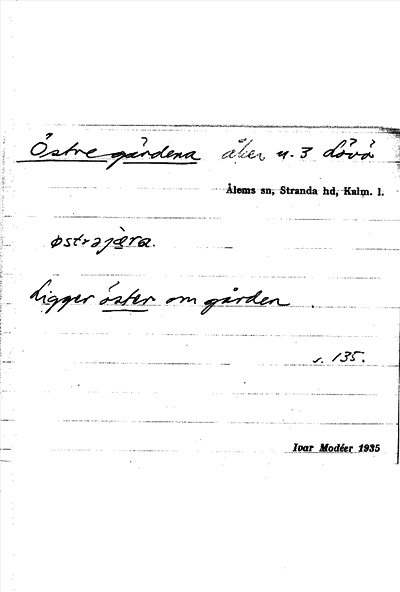 Östregärdena åker n. 3 Lövö
Ålems sn, Stranda hd, Kalm. l.
østrəjæra.
Ligger öster om gården.
s. 135.
Ivar Modéer 1935